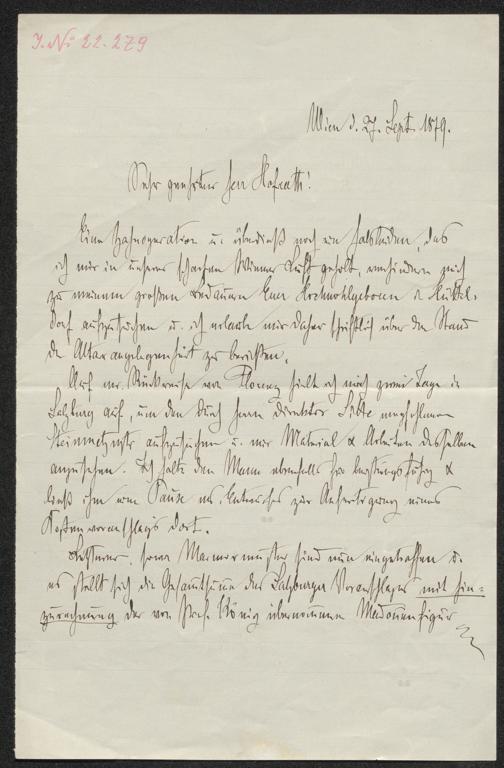 J. No 22.279
Wien d. 27. Sept. 1879.
Sehr geehrter Herr Hofrath!
Eine Zahnoperation u. überdieß noch ein Halsleiden, das
ich mir in unserer scharfen Wiener Luft geholt, verhindern mich
zu meinem großen Bedauern Euer Hochwohlgeboren in Hüttel-
dorf aufzusuchen u. ich erlaube mir daher schriftlich über den Stand
der Altarangelegenheit zu berichten.
Auf mr. Rückreise von Florenz hielt ich mich zwei Tage in
Salzburg auf, um den durch Herrn Direktor empfohlenen
Steinmetzmstr aufzusuchen u. mir Material & Arbeiten desselben
anzusehen. Ich halte den Mann ebenfalls für leistungsfähig &
ließ ihm eine Pause ms. Entwurfes zur Anfertigung eines
Kostenvoranschlages dort.
Letzterer sowie Marmormuster sind nun eingetroffen u.
es stellt sich die Gesamtsumme des Salzburger Voranschlages mit Hin-
zurechnung der von Prof. König übernommenen Madonnenfigur